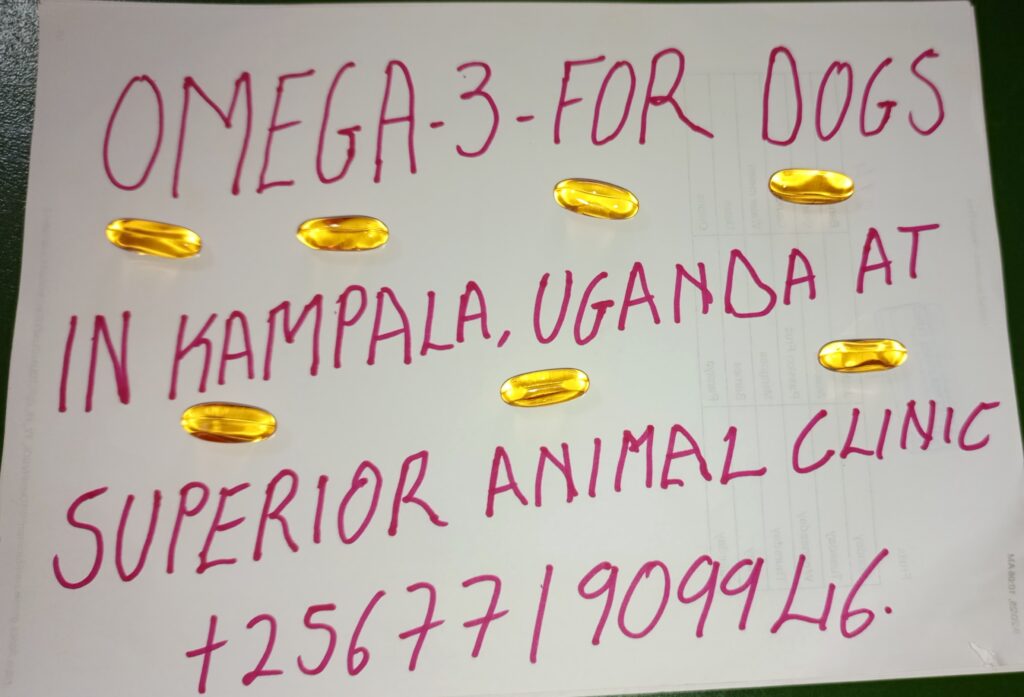 OMEGA-3-FOR DOGS
IN KAMPALA, UGANDA AT
SUPERIOR ANIMAL CLINIC
+256771909946.